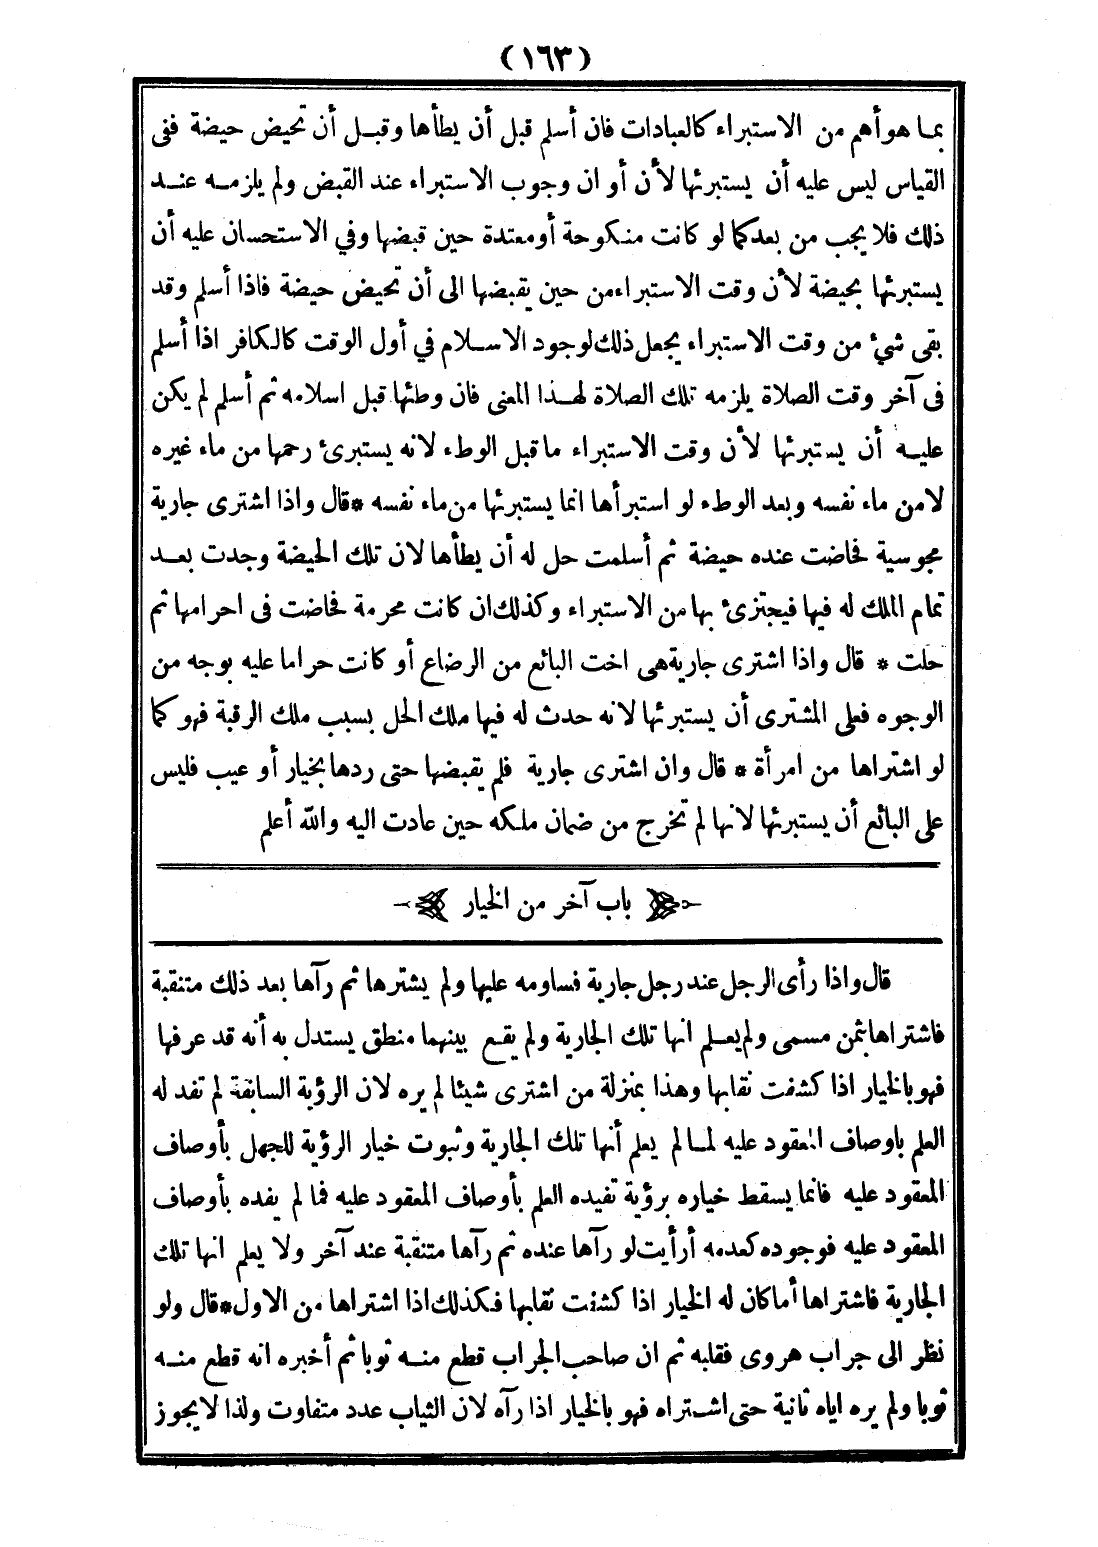 (١٦٣)
بما هو أهم من الاستبراء كالعبادات فان أسلم قبل أن يطأها وقبل أن تحيض حيضة ففى
القياس ليس عليه أن يستبرئها لأن أو ان وجوب الاستبراء عند القبض ولم يلزمه عند
ذلك فلا يجب من بعد كما لو كانت منكوحة أو معتدة حين قبضها وفي الاستحسان عليه أن
يستبرئها بحيضة لأن وقت الاستبراء من حين يقبضها الى أن تحيض حيضة فاذا أسلم وقد
بقى شئ من وقت الاستبراء يجعل ذلك لوجود الاسلام في أول الوقت كالكافر اذا أسلم
فى آخر وقت الصلاة يلزمه تلك الصلاة لهذا المعنى فان وطئها قبل اسلامه ثم أسلم لم يكن
عليه أن يستبرئها لأن وقت الاستبراء ما قبل الوطء لانه يستبرئ رحمها من ماء غيره
لا من ماء نفسه وبعد الوطء لو استبرأها انما يستبرئها من ماء نفسه * قال واذا اشترى جارية
مجوسية فحاضت عنده حيضة ثم أسلمت حل له أن يطأها لان تلك الحيضة وجدت بعد
تمام الملك له فيها فيجتزئ بها من الاستبراء وكذلك ان كانت محرمة فحاضت فى احرامها ثم
حلت * قال واذا اشترى جارية هى اخت البائع من الرضاع أو كانت حراما عليه بوجه من
الوجوه فعلى المشترى أن يستبرئها لانه حدث له فيها ملك الحل بسبب ملك الرقبة فهو كما
لو اشتراها من امرأة * قال وان اشترى جارية فلم يقبضها حتى ردها بخيار أو عيب فليس
على البائع أن يستبرئها لانها لم تخرج من ضمان ملكه حين عادت اليه والله أعلم
باب آخر من الخيار
قال واذا رأى الرجل عند رجل جارية فساومه عليها ولم يشترها ثم رآها بعد ذلك متنقبة
فاشتراها بثمن مسمى ولم يعلم انها تلك الجارية ولم يقع بينهما منطق يستدل به أنه قد عرفها
فهو بالخيار اذا كشفت نقابها وهذا بمنزلة من اشترى شيئا لم يره لان الرؤية السابقة لم تفد له
العلم باوصاف المعقود عليه لما لم يعلم أنها تلك الجارية وثبوت خيار الرؤية للجهل بأوصاف
المعقود عليه فانما يسقط خياره برؤية تفيده العلم بأوصاف المعقود عليه فما لم يفده بأوصاف
المعقود عليه فوجوده كعدمه أرأيت لو رآها عنده ثم رآها متنقبة عند آخر ولا يعلم انها تلك
الجارية فاشتراها أما كان له الخيار اذا كشفت نقابها فكذلك اذا اشتراها من الاول * قال ولو
نظر الى جراب هروى فقلبه ثم ان صاحب الجراب قطع منه ثوبا ثم أخبره انه قطع منه
ثوبا ولم يره اياه ثانية حتى اشتراه فهو بالخيار اذا رآه لان الثياب عدد متفاوت ولذا لا يجوز